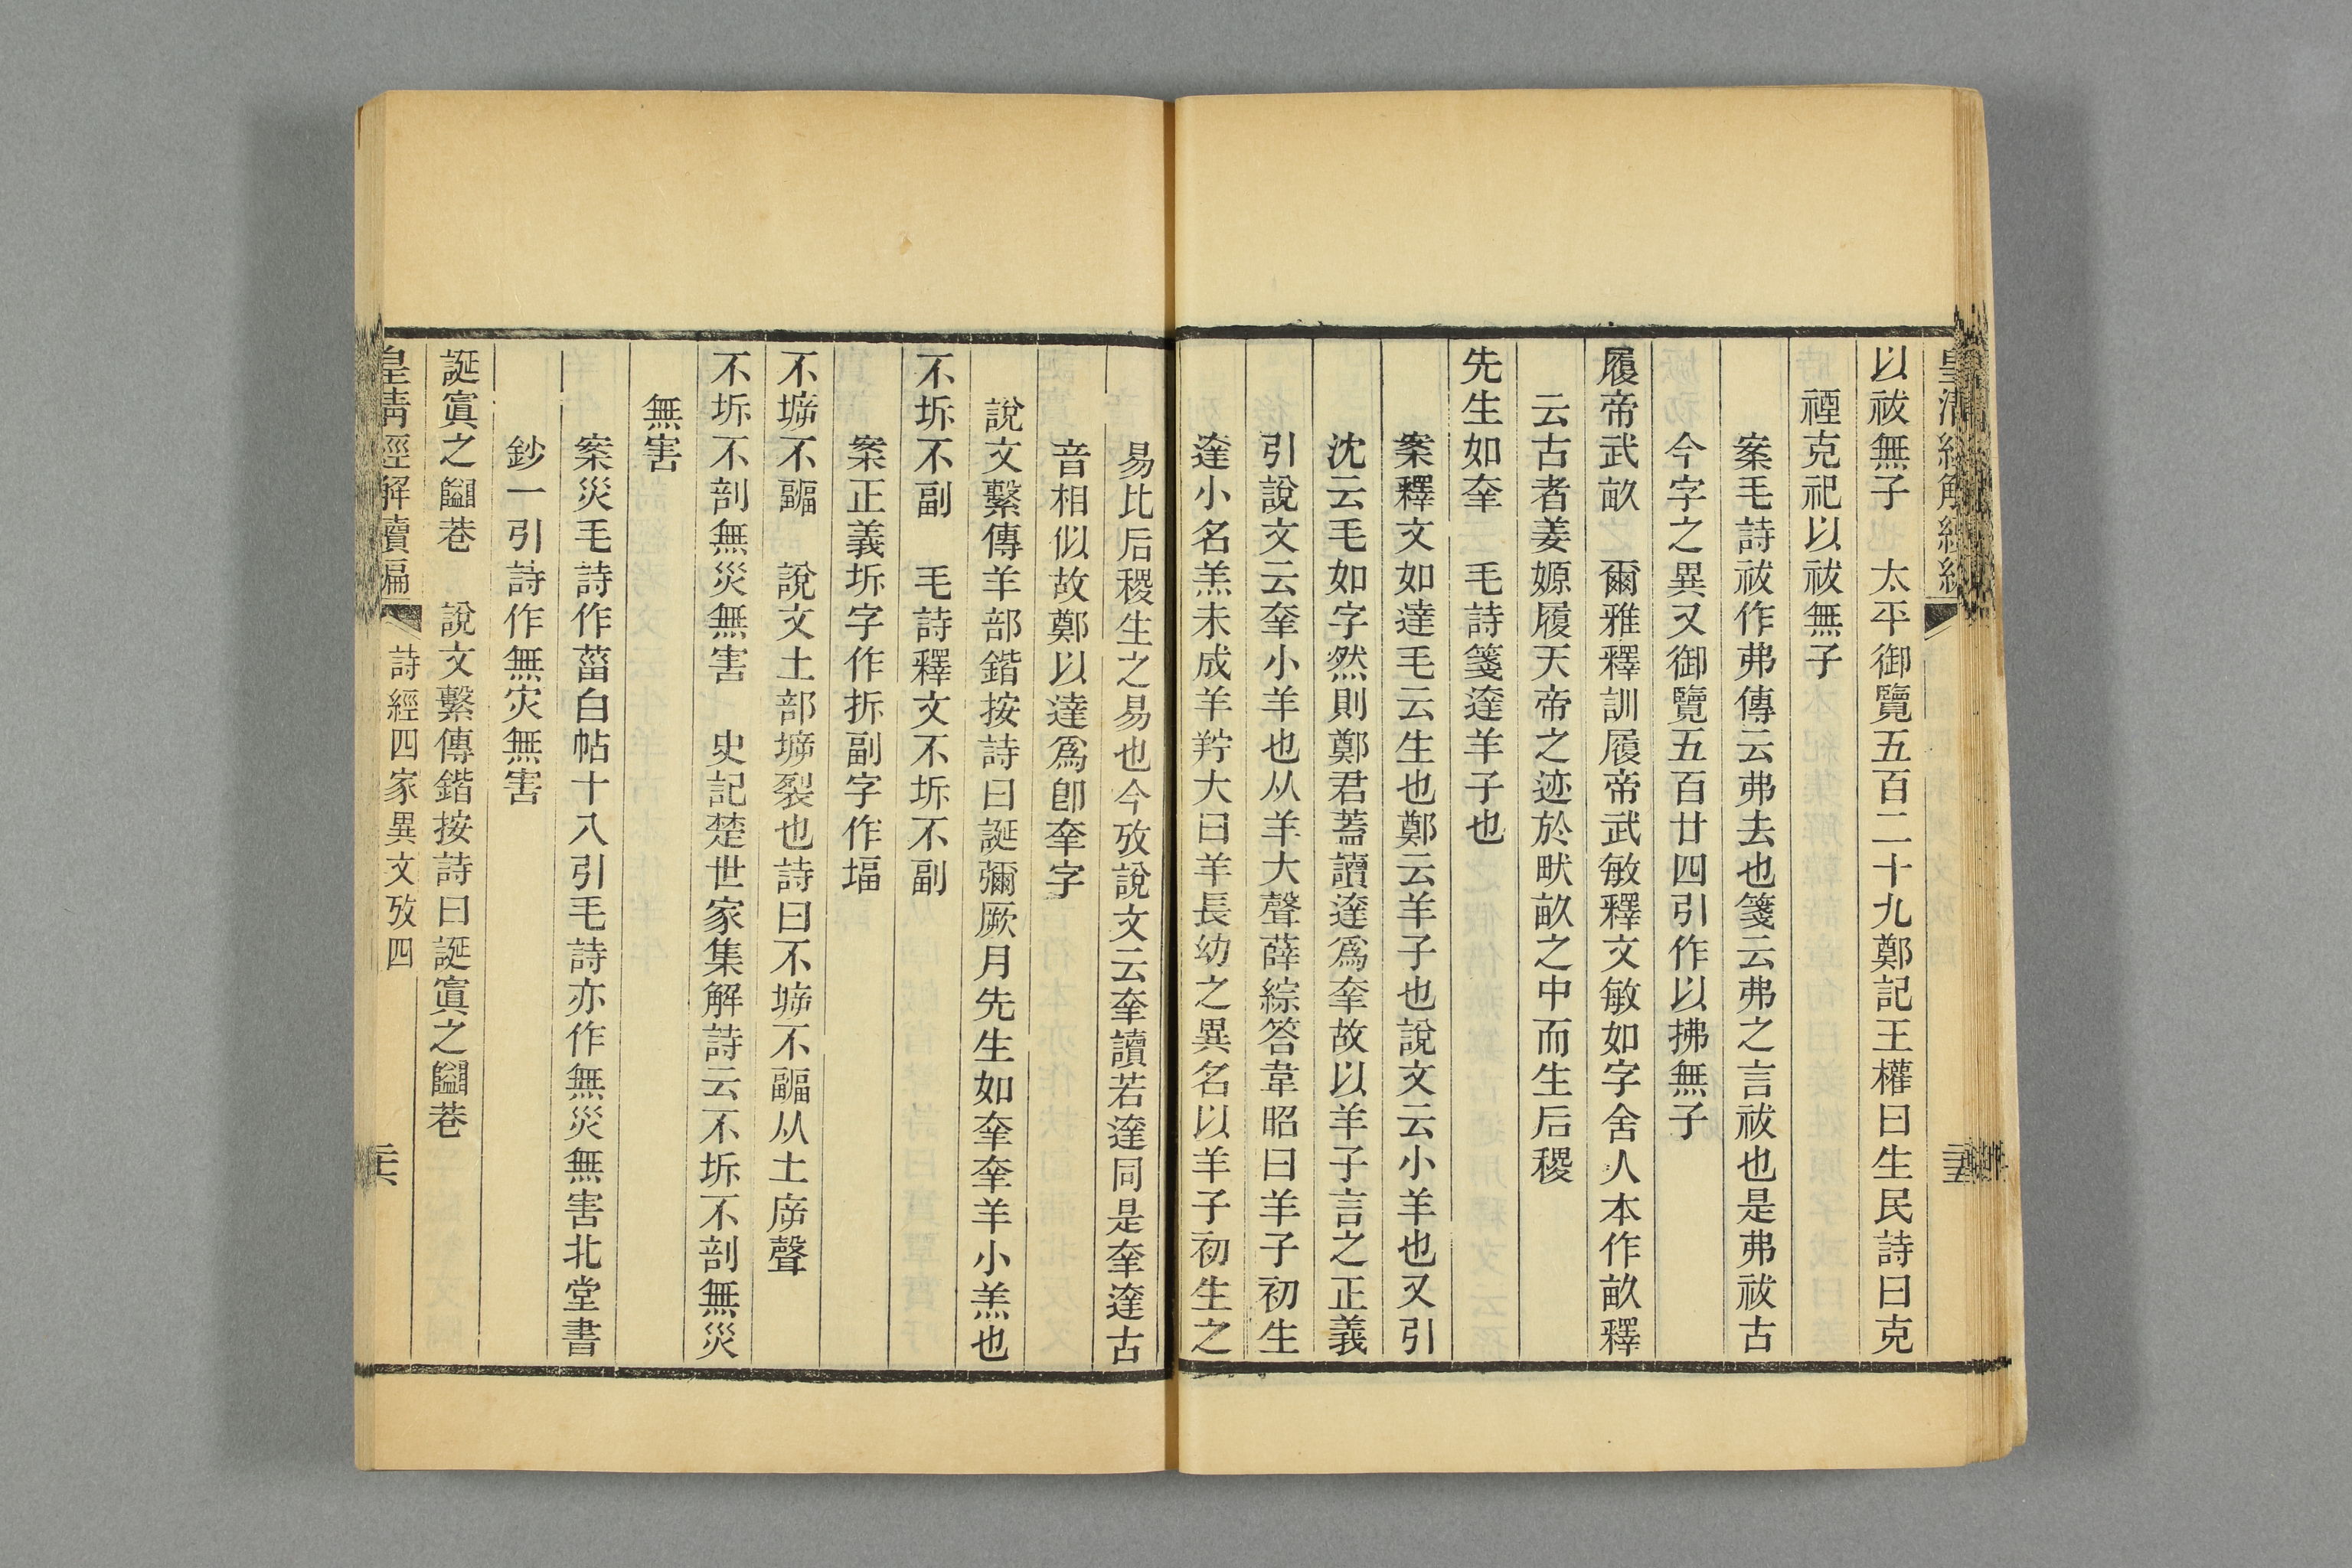 以祓無子　太平御覽五百二十九鄭記王權曰生民詩曰克
禋克祀以祓無子
案毛詩祓作弗傳云弗去也箋云弗之言祓也是弗祓古
今字之異又御覽五百廿四引作以拂無子
履帝武畝　爾雅釋訓履帝武敏釋文敏如字舍人本作畝釋
云古者姜嫄履天帝之迹於畎畝之中而生后稷
先生如羍　毛詩箋達羊子也
案釋文如達毛云生也鄭云羊子也說文云小羊也又引
沈云毛如字然則鄭君蓋讀達爲羍故以羊子言之正義
引說文云羍小羊也从羊大聲薛綜答韋昭曰羊子初生
達小名羔未成羊羜大曰羊長幼之異名以羊子初生之
易比后稷生之易也今攷說文云羍讀若達同是羍達古
音相似故鄭以達爲卽羍字
說文繫傳羊部鍇按詩曰誕彌厥月先生如羍羍羊小羔也
不坼不副　毛詩釋文不坼不副
案正義坼字作拆副字作堛
不㙤不疈　說文土部㙤裂也詩曰不㙤不疈从土㡿聲
不坼不剖無災無害　史記楚世家集解詩云不坼不剖無災
無害
案災毛詩作菑白帖十八引毛詩亦作無災無害北堂書
鈔一引詩作無灾無害
誕寘之𨵿巷　說文繫傳鍇按詩曰誕寘之𨵿巷
皇清經解續編　詩經四家異文攷四